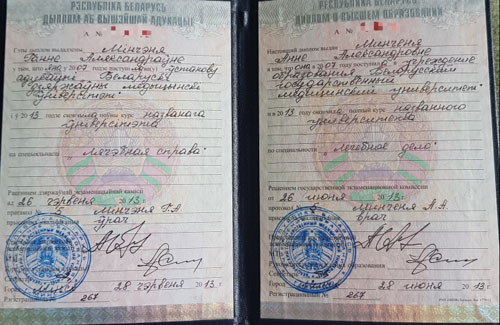 РЭСПУБЛІКА БЕЛАРУСЬ
ДЫПЛОМ АБ ВЫШЭЙШАЙ АДУКАЦЫІ
Гэты дыплом выдадзены Мінчэня
Ганне Аляксандраўне
у тым, што 07 установу
адукацыі „Беларускі
дзяржаўны медыцынскі
ўніверсітэт"
і ў 2013 годзе скончыла поўны курс названага
ўніверсітэта
па спецыяльнасці „лячэбная справа"
Рашэннем дзяржаўнай экзаменацыйнай камісіі
ад 26 чэрвеня 2013 г.
пратакол 5 Мінчэня Г.А.
урач
28 чэрвеня 2013 г.
Рэгістрацыйны № 267
РЕСПУБЛИКА БЕЛАРУСЬ
ДИПЛОМ О ВЫСШЕМ ОБРАЗОВАНИИ
Настоящий диплом выдан Минченя
Анне Александровне
в том, что она 07 поступила учреждение
образования „Белорусский
государственный
медицинский университет"
и в 2013 полный курс названного
университета
по специальности „лечебное дело"
Решением государственной экзаменационной комиссии
от 26 июня 2013 г.
протокол Минченя А.А.
врач
Город 28 июня 2013 г.
Регистрационный № 267